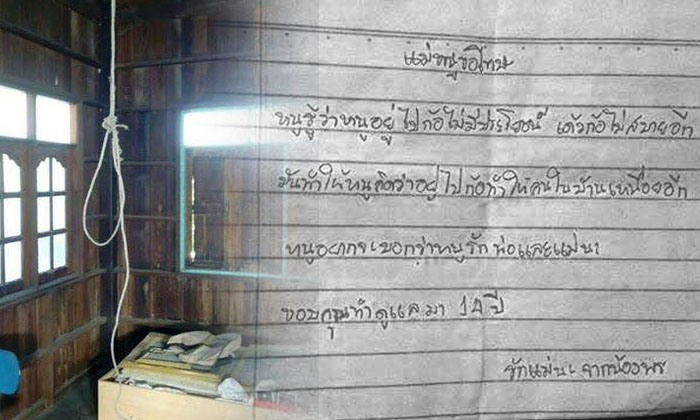 แม่หนูขอโทษ
หนูรู้ว่าหนูอยู่ไปก้อไม่มีประโยชน์ เด๋วก้อไม่สบายอีก
มันทำให้หนูคิดว่าอยู่ไปก้อทำให้คนในบ้านเหนื่อยอีก
หนูอยากจะบอกว่าหนูรักพ่อและแม่นะ
ขอบคุณที่ดูแลมา 14 ปี
รักแม่นะ จากน้องพร